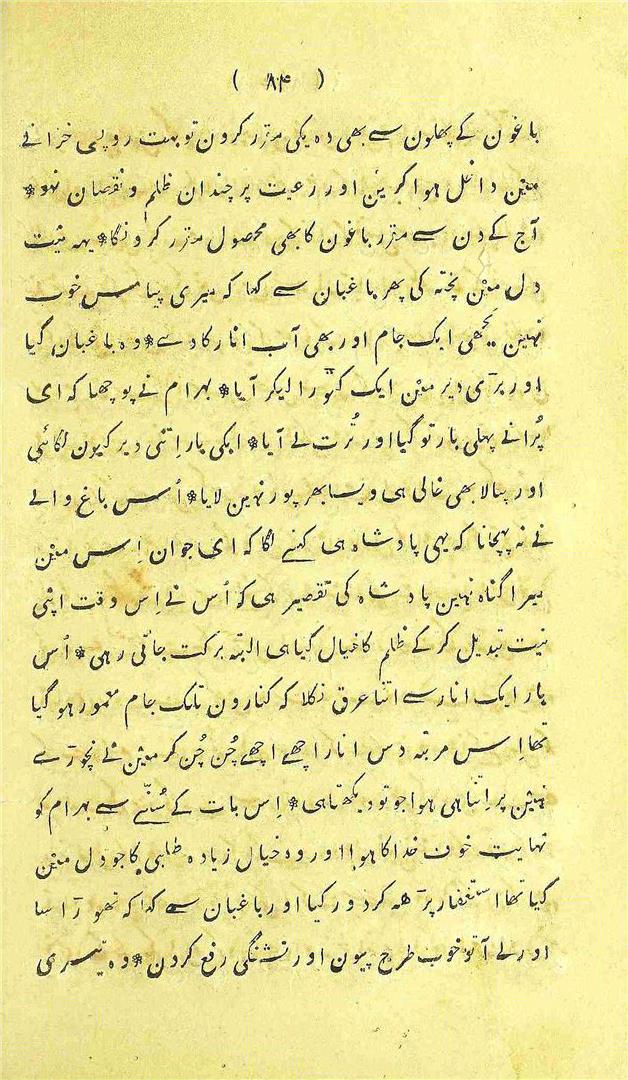 ( ۸۴ )
باغون کے پھلون سے بھی دہ یکی مقرر کرون تو بہت روپی خزانے
مین داخل ہوا کرین اور رعیت پر چندان ظلم و نقصان نہو *
آج کے دن سے مقرر باغون کا بھی محصول مقرر کرونگا * یہہ نیت
دل مین پختہ کی پھر باغبان سے کہا کہ میری پیاس خوب
نہین بجھی ایک جام اور بھی آب انار کا دے * وہ باغبان گیا
اور بڑی دیر مین ایک کٹورا لیکر آیا * بہرام نے پوچھا کہ ای
پُرانے پہلی بار تو گیا اور تُرت لے آیا * ابکی بار اِتنی دیر کیون لگائی
اور پیالا بھی خالی ہی ویسا بھر پور نہین لایا * اُس باغ والے
نے نہ پہچانا کہ یہی پادشاہ ہی کہنے لگا کہ ای جوان اِس مین
میرا گناہ نہین پادشاہ کی تقصیر ہی کہ اُس نے اِس وقت اپنی
نیت تبدیل کر کے ظلم کا خیال کیا ہی البتہ برکت جاتی رہی * اُس
بار ایک انار سے اتنا عرق نکلا کہ کنارون تلک جام معمور ہو گیا
تھا اِس مرتبہ دس انار اچھے اچھے چُن چُن کر مین نے نچوڑے
نہین پر اِتنا ہی ہوا جو تو دیکھتا ہی * اِس بات کے سُننے سے بہرام کو
نہایت خوف خدا کا ہوا اور وہ خیال زیادہ طلبی کا جو دل مین
کیا تھا استغفار پڑھہ کر دور کیا اور باغبان سے کہا کہ تھوڑا سا
اور لے آ تو خوب طرح پیون اور تشنگی رفع کرون * وہ تیسری